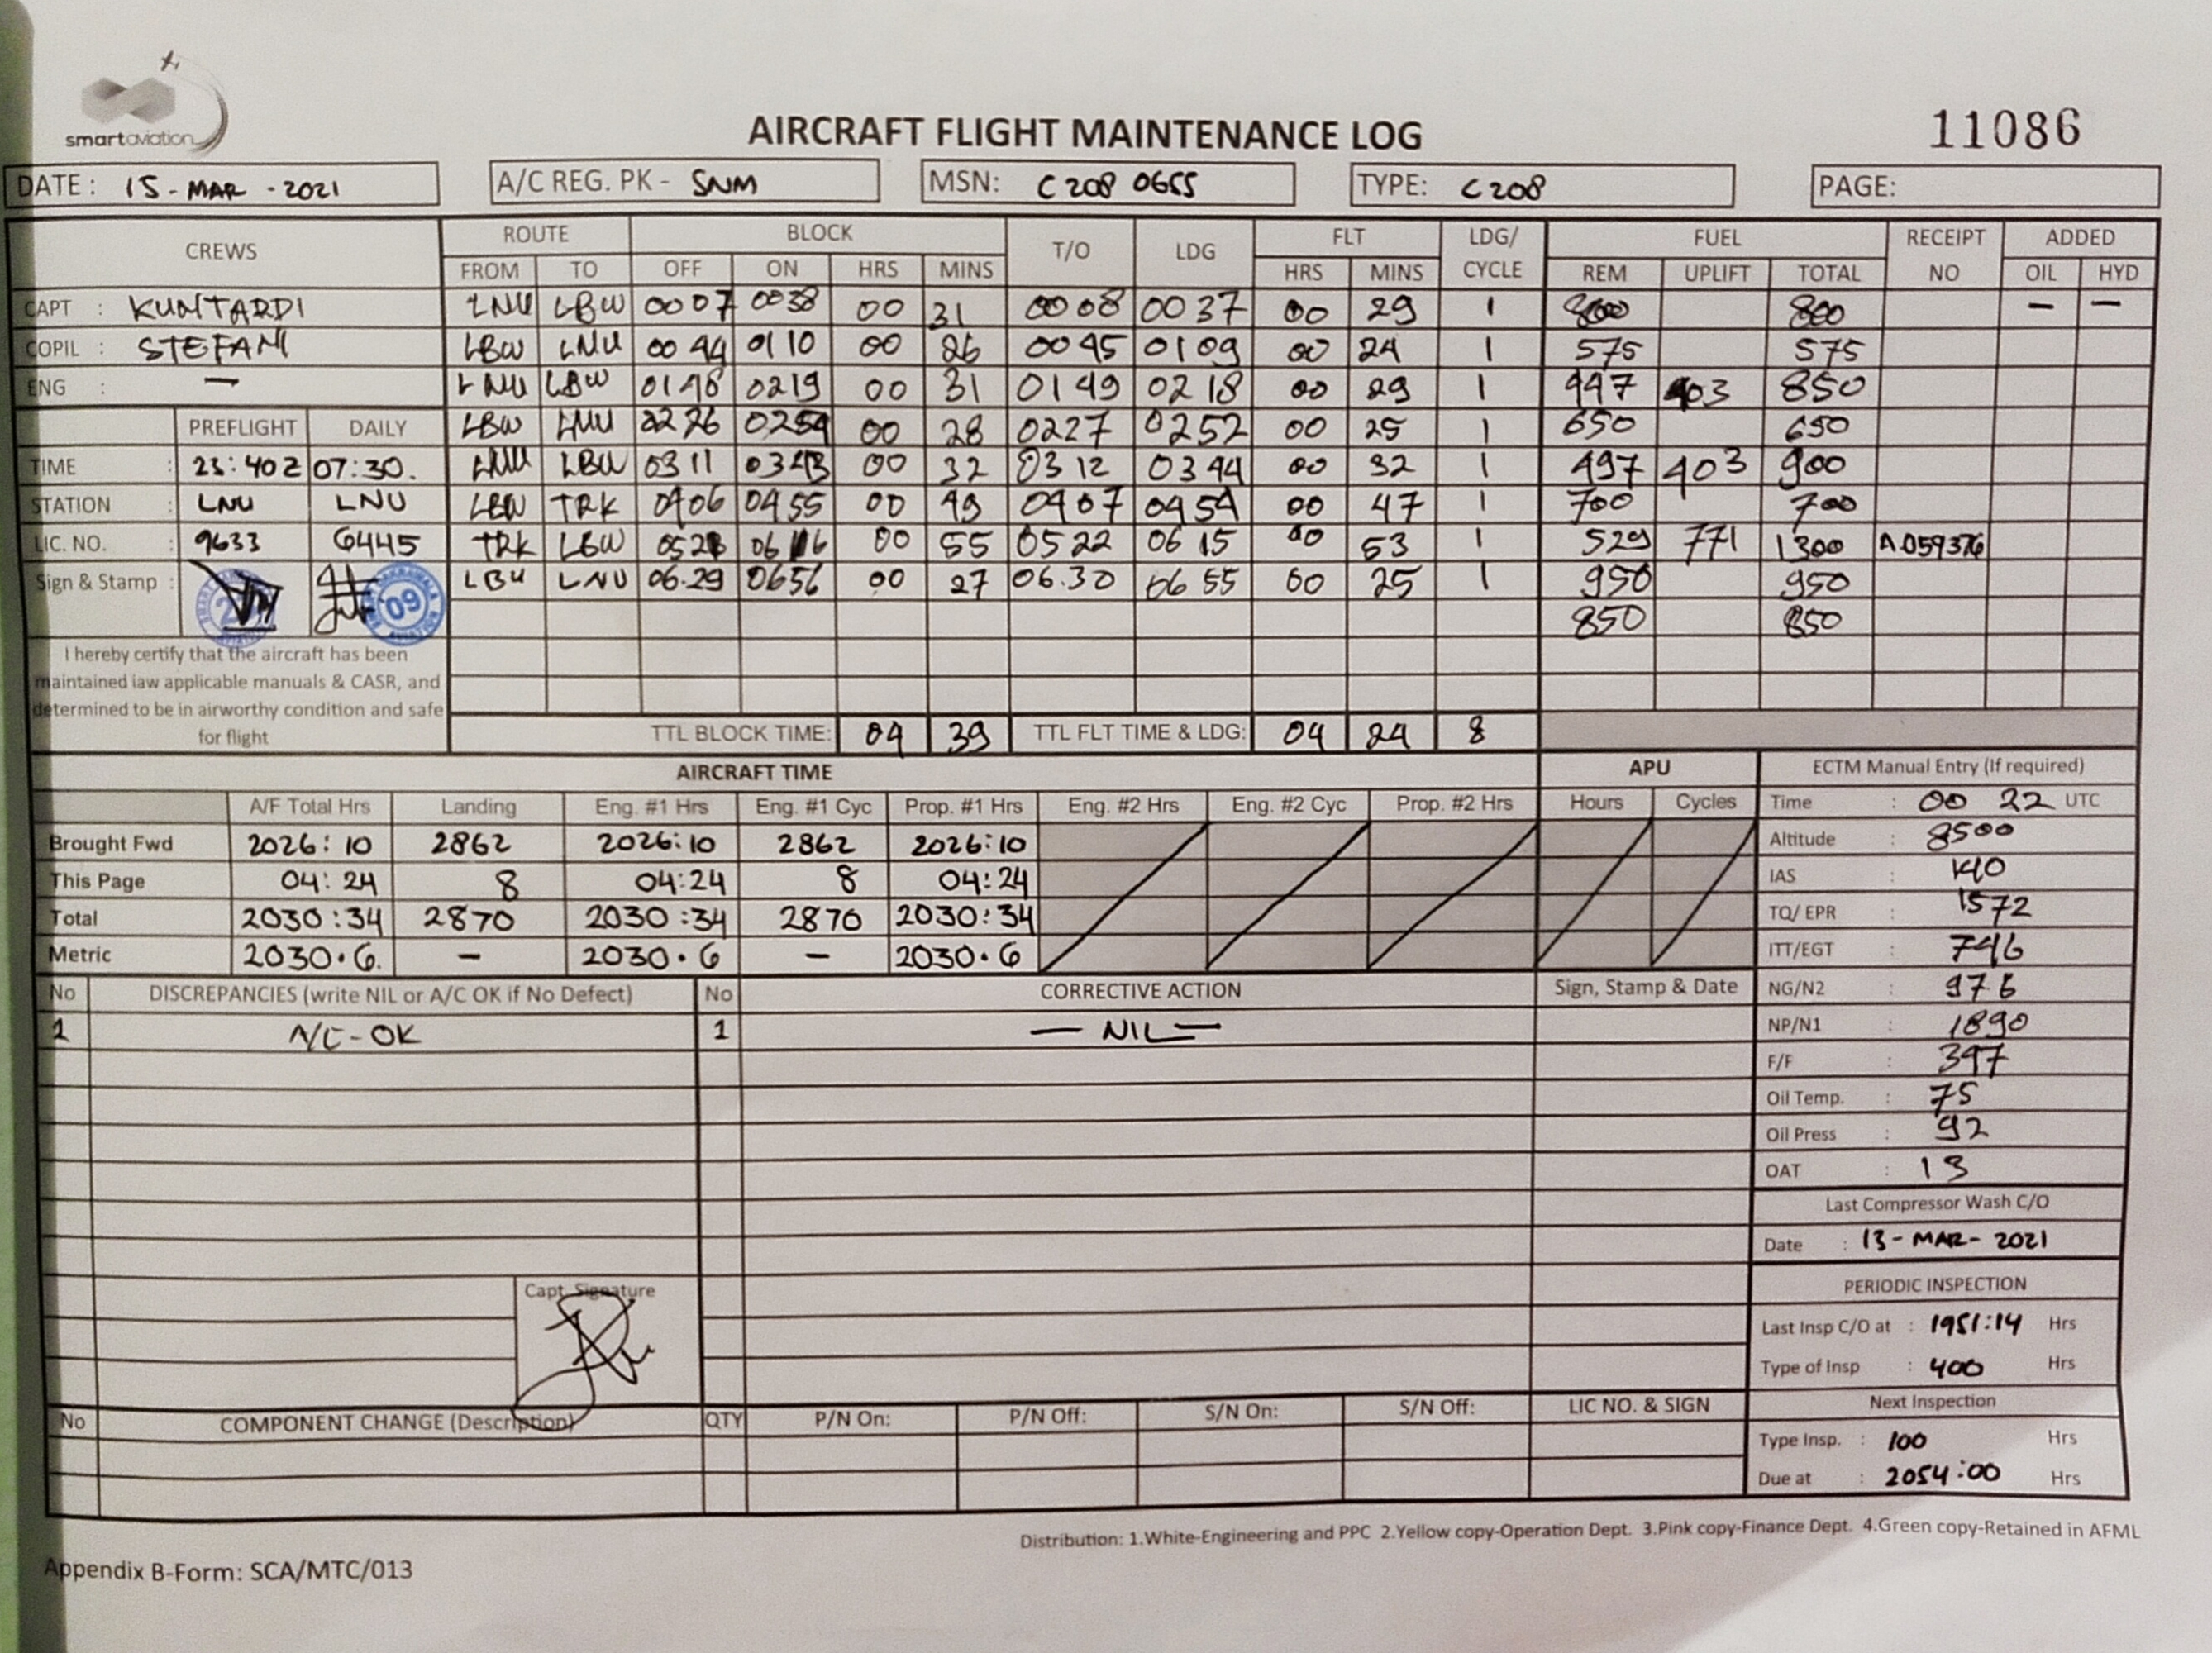 smartaviation
AIRCRAFT FLIGHT MAINTENANCE LOG
11086
DATE: 15-MAR-2021 A/C REG. PK - SNM MSN: C208 0655 TYPE: C208 PAGE:
CREWS ROUTE BLOCK T/O LDG FLT LDG/ CYCLE FUEL RECEIPT NO ADDED
FROM TO OFF ON HRS MINS HRS MINS REM UPLIFT TOTAL OIL HYD
CAPT : KUNTARDI LNU LBW 0007 0038 00 31 0008 0037 00 29 1 800 800 — —
COPIL : STEFANI LBW LNU 0044 0110 00 26 0045 0109 00 24 1 575 575
ENG : — LNU LBW 0148 0219 00 31 0149 0218 00 29 1 447 403 850
PREFLIGHT DAILY LBW LNU 0226 0254 00 28 0227 0252 00 25 1 650 650
TIME : 23:40Z 07:30. LNU LBW 0311 0343 00 32 0312 0344 00 32 1 497 403 900
STATION : LNU LNU LBW TRK 0406 0455 00 49 0407 0454 00 47 1 700 700
LIC. NO. : 9633 6445 TRK LBW 0521 0616 00 55 0522 0615 00 53 1 529 771 1300 A.059376
Sign & Stamp : 09 LBW LNU 06.29 0656 00 27 06.30 0655 00 25 1 950 950
850 850
I hereby certify that the aircraft has been
maintained iaw applicable manuals & CASR, and
determined to be in airworthy condition and safe
for flight
TTL BLOCK TIME: 04 39 TTL FLT TIME & LDG: 04 24 8
AIRCRAFT TIME APU
A/F Total Hrs Landing Eng. #1 Hrs Eng. #1 Cyc Prop. #1 Hrs Eng. #2 Hrs Eng. #2 Cyc Prop. #2 Hrs Hours Cycles
Brought Fwd 2026:10 2862 2026:10 2862 2026:10
This Page 04:24 8 04:24 8 04:24
Total 2030:34 2870 2030:34 2870 2030:34
Metric 2030.6. — 2030.6 — 2030.6
ECTM Manual Entry (If required)
Time : 00 22 UTC
Altitude : 8500
IAS : 140
TQ/ EPR : 1572
ITT/EGT : 746
NG/N2 : 97.6
NP/N1 : 1890
F/F : 347
Oil Temp. : 75
Oil Press : 92
OAT : 13
Last Compressor Wash C/O
Date : 13-MAR-2021
PERIODIC INSPECTION
Last Insp C/O at : 1951:14 Hrs
Type of Insp : 400 Hrs
Next Inspection
Type Insp. : 100 Hrs
Due at : 2054:00 Hrs
No DISCREPANCIES (write NIL or A/C OK if No Defect) No CORRECTIVE ACTION Sign, Stamp & Date
1 A/C-OK 1 — NIL —
Capt. Signature
No COMPONENT CHANGE (Description) QTY P/N On: P/N Off: S/N On: S/N Off: LIC NO. & SIGN
Distribution: 1.White-Engineering and PPC 2.Yellow copy-Operation Dept. 3.Pink copy-Finance Dept. 4.Green copy-Retained in AFML
Appendix B-Form: SCA/MTC/013